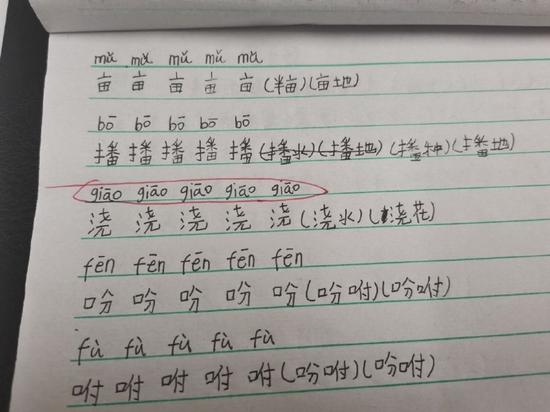 mǔ mǔ mǔ mǔ mǔ
亩 亩 亩 亩 亩 (半亩)(亩地)
bō bō bō bō bō
播 播 播 播 播 (播水)(播地) (播种)(播地)
giāo giāo giāo giāo giāo
浇 浇 浇 浇 浇 (浇水)(浇花)
fēn fēn fēn fēn fēn
吩 吩 吩 吩 吩 (吩咐)(吩咐)
fù fù fù fù fù
咐 咐 咐 咐 咐 (吩咐)(吩咐)